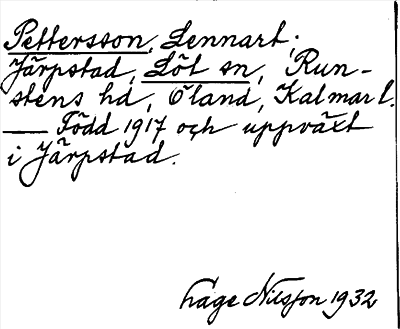 Pettersson, Lennart;
Järpstad, Löt sn, Run-
stens hd, Öland, Kalmar l.
— Född 1917 och uppväxt
i Järpstad.
Håge Nilsson 1932